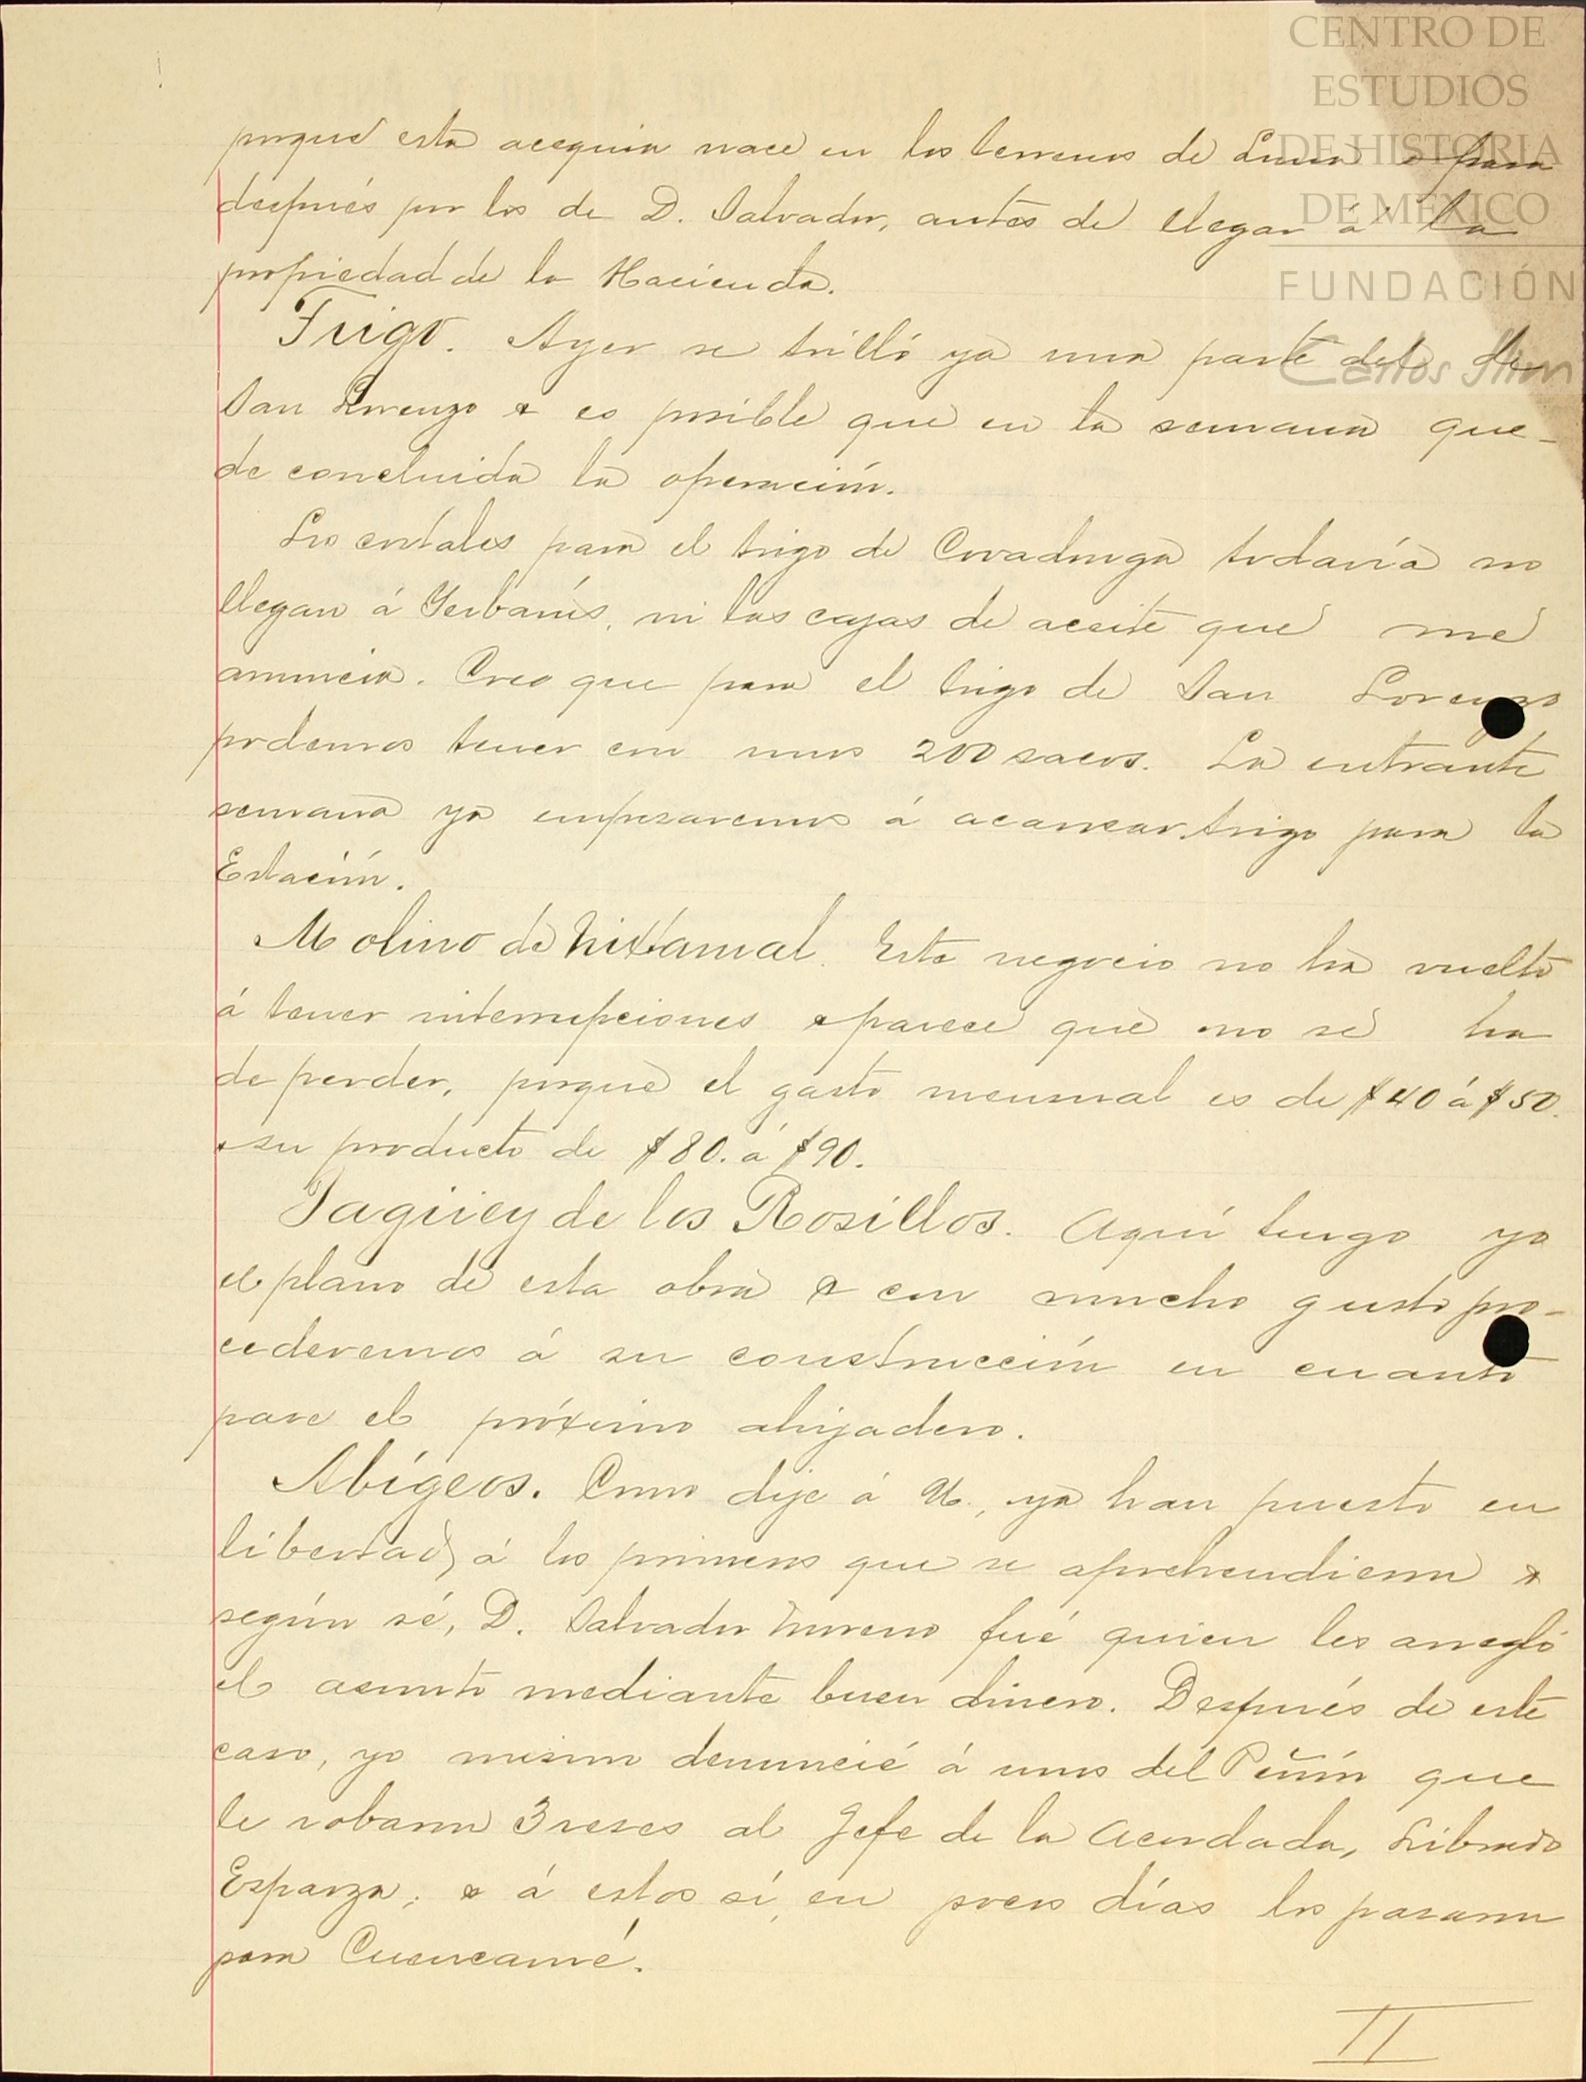 CENTRO DE
ESTUDIOS
DE HISTORIA
DE MÉXICO
FUNDACIÓN
Carlos Slim
porque esta acequia nace en los terrenos de Luna & pasa
después por los de D. Salvador, antes de llegar á la
propiedad de la Hacienda.
Trigo. Ayer se trilló ya una parte del de
San Lorenzo & es posible que en la semana que-
de concluida la operación.
Los costales para el trigo de Covadonga todavía no
llegan á Yerbanís, ni las cajas de aceite que me
anuncia. Creo que para el trigo de San Lorenzo
podemos tener con unos 200 sacos. La entrante
semana ya empesaremos á acarrear trigo para la
Estación.
Molino de Nixtamal. Este negocio no ha vuelto
á tener interrupciones & parece que no se ha
de perder, porque el gasto mensual es de $40 á $50.
& su producto de $80. á $90.
Tagüey de los Rosillos. Aquí tengo ya
el plano de esta obra & con mucho gusto pro-
cederemos á su construcción en cuanto
pase el próximo ahijadero.
Abígeos. Como dije á U., ya han puesto en
libertad á los primeros que se aprehendieron &
según sé, D. Salvador Moreno fué quien les arregló
el asunto mediante buen dinero. Después de este
caso, yo mismo denuncié á unos del Peñón que
le robaron 3 reses al Jefe de la Acordada, Librado
Esparza; & á estos sí, en pocos días los pasaron
para Cuencamé.
II